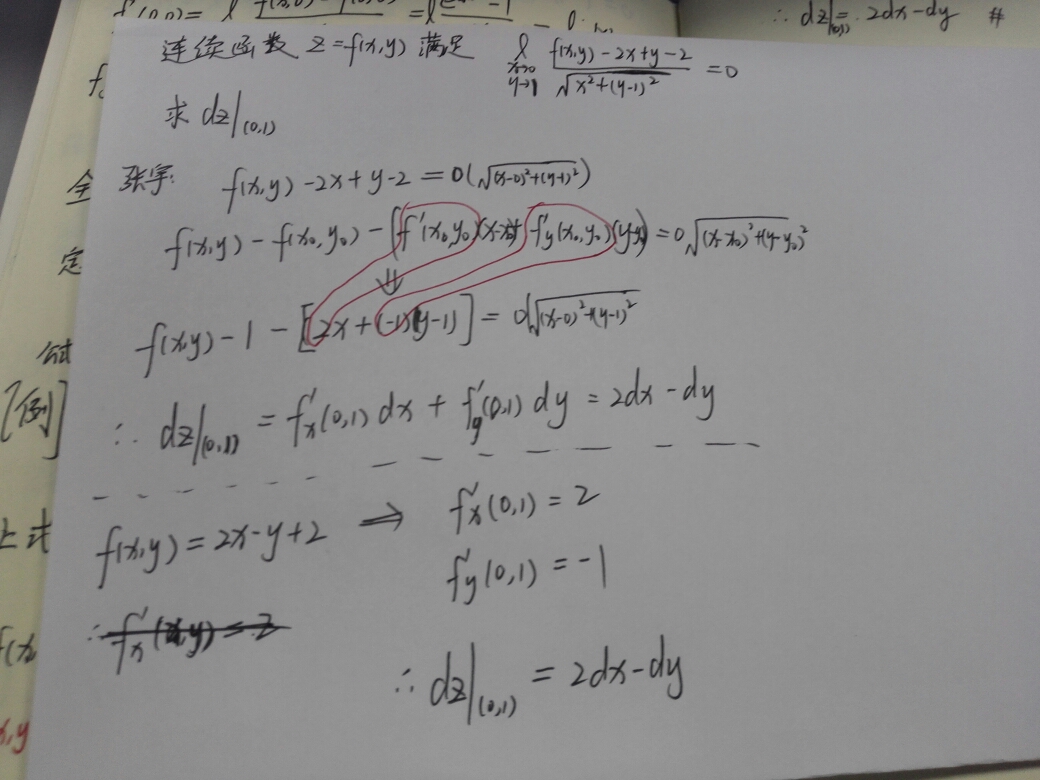 f'(0,0) =
∴ dz|(0,1) = 2dx-dy #
连续函数 z=f(x,y) 满足 l x→0 y→1 f(x,y)-2x+y-2 / √x²+(y-1)² =0
求 dz|(0,1)
张宇: f(x,y)-2x+y-2=0(√(x-0)²+(y-1)²)
f(x,y)-f(x₀,y₀)-[f'(x₀,y₀)(x-x₀)+f'y(x₀,y₀)(y-y₀)]=0√(x-x₀)²+(y-y₀)²
⇓
f(x,y)-1-[2x+(-1)(y-1)]=0√(x-0)²+(y-1)²
∴ dz|(0,1) = f'x(0,1)dx + f'y(0,1)dy = 2dx-dy
f(x,y)=2x-y+2 ⇒ f'x(0,1)=2
f'y(0,1)=-1
∴ dz|(0,1) = 2dx-dy
全
定
[例]
上式
f(x
x,y